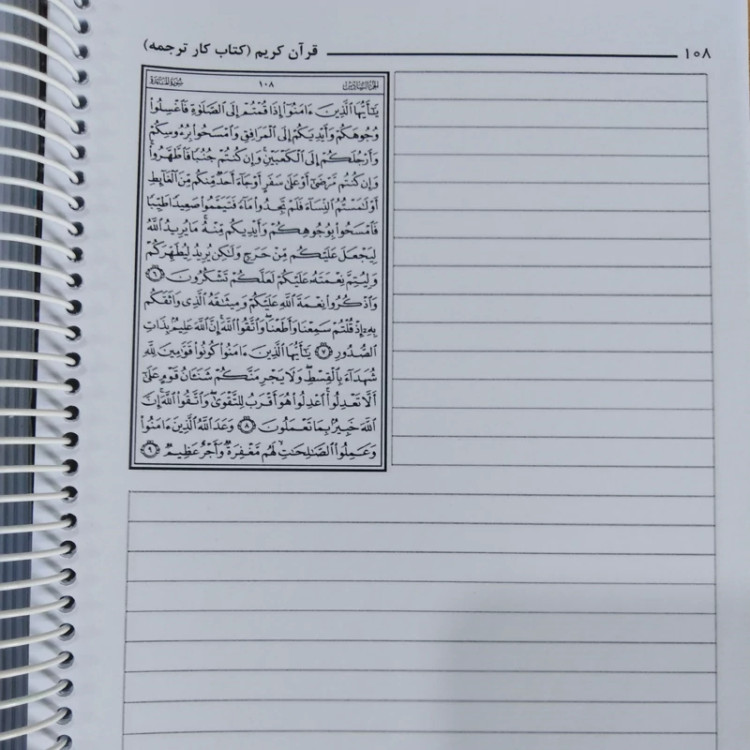 ۱۰۸ قرآن کریم (کتاب کار ترجمه)
الجزء السادس ١٠٨ سورة المائدة
يَٰٓأَيُّهَا ٱلَّذِينَ ءَامَنُوٓا۟ إِذَا قُمْتُمْ إِلَى ٱلصَّلَوٰةِ فَٱغْسِلُوا۟
وُجُوهَكُمْ وَأَيْدِيَكُمْ إِلَى ٱلْمَرَافِقِ وَٱمْسَحُوا۟ بِرُءُوسِكُمْ
وَأَرْجُلَكُمْ إِلَى ٱلْكَعْبَيْنِ وَإِن كُنتُمْ جُنُبًا فَٱطَّهَّرُوا۟
وَإِن كُنتُم مَّرْضَىٰٓ أَوْ عَلَىٰ سَفَرٍ أَوْ جَآءَ أَحَدٌ مِّنكُم مِّنَ ٱلْغَآئِطِ
أَوْ لَٰمَسْتُمُ ٱلنِّسَآءَ فَلَمْ تَجِدُوا۟ مَآءً فَتَيَمَّمُوا۟ صَعِيدًا طَيِّبًا
فَٱمْسَحُوا۟ بِوُجُوهِكُمْ وَأَيْدِيكُم مِّنْهُ مَا يُرِيدُ ٱللَّهُ
لِيَجْعَلَ عَلَيْكُم مِّنْ حَرَجٍ وَلَٰكِن يُرِيدُ لِيُطَهِّرَكُمْ
وَلِيُتِمَّ نِعْمَتَهُۥ عَلَيْكُمْ لَعَلَّكُمْ تَشْكُرُونَ ٦
وَٱذْكُرُوا۟ نِعْمَةَ ٱللَّهِ عَلَيْكُمْ وَمِيثَٰقَهُ ٱلَّذِى وَاثَقَكُم
بِهِۦٓ إِذْ قُلْتُمْ سَمِعْنَا وَأَطَعْنَا وَٱتَّقُوا۟ ٱللَّهَ إِنَّ ٱللَّهَ عَلِيمٌۢ بِذَاتِ
ٱلصُّدُورِ ٧ يَٰٓأَيُّهَا ٱلَّذِينَ ءَامَنُوا۟ كُونُوا۟ قَوَّٰمِينَ لِلَّهِ
شُهَدَآءَ بِٱلْقِسْطِ وَلَا يَجْرِمَنَّكُمْ شَنَـَٔانُ قَوْمٍ عَلَىٰٓ
أَلَّا تَعْدِلُوا۟ ٱعْدِلُوا۟ هُوَ أَقْرَبُ لِلتَّقْوَىٰ وَٱتَّقُوا۟ ٱللَّهَ إِنَّ
ٱللَّهَ خَبِيرٌۢ بِمَا تَعْمَلُونَ ٨ وَعَدَ ٱللَّهُ ٱلَّذِينَ ءَامَنُوا۟
وَعَمِلُوا۟ ٱلصَّٰلِحَٰتِ لَهُم مَّغْفِرَةٌ وَأَجْرٌ عَظِيمٌ ٩